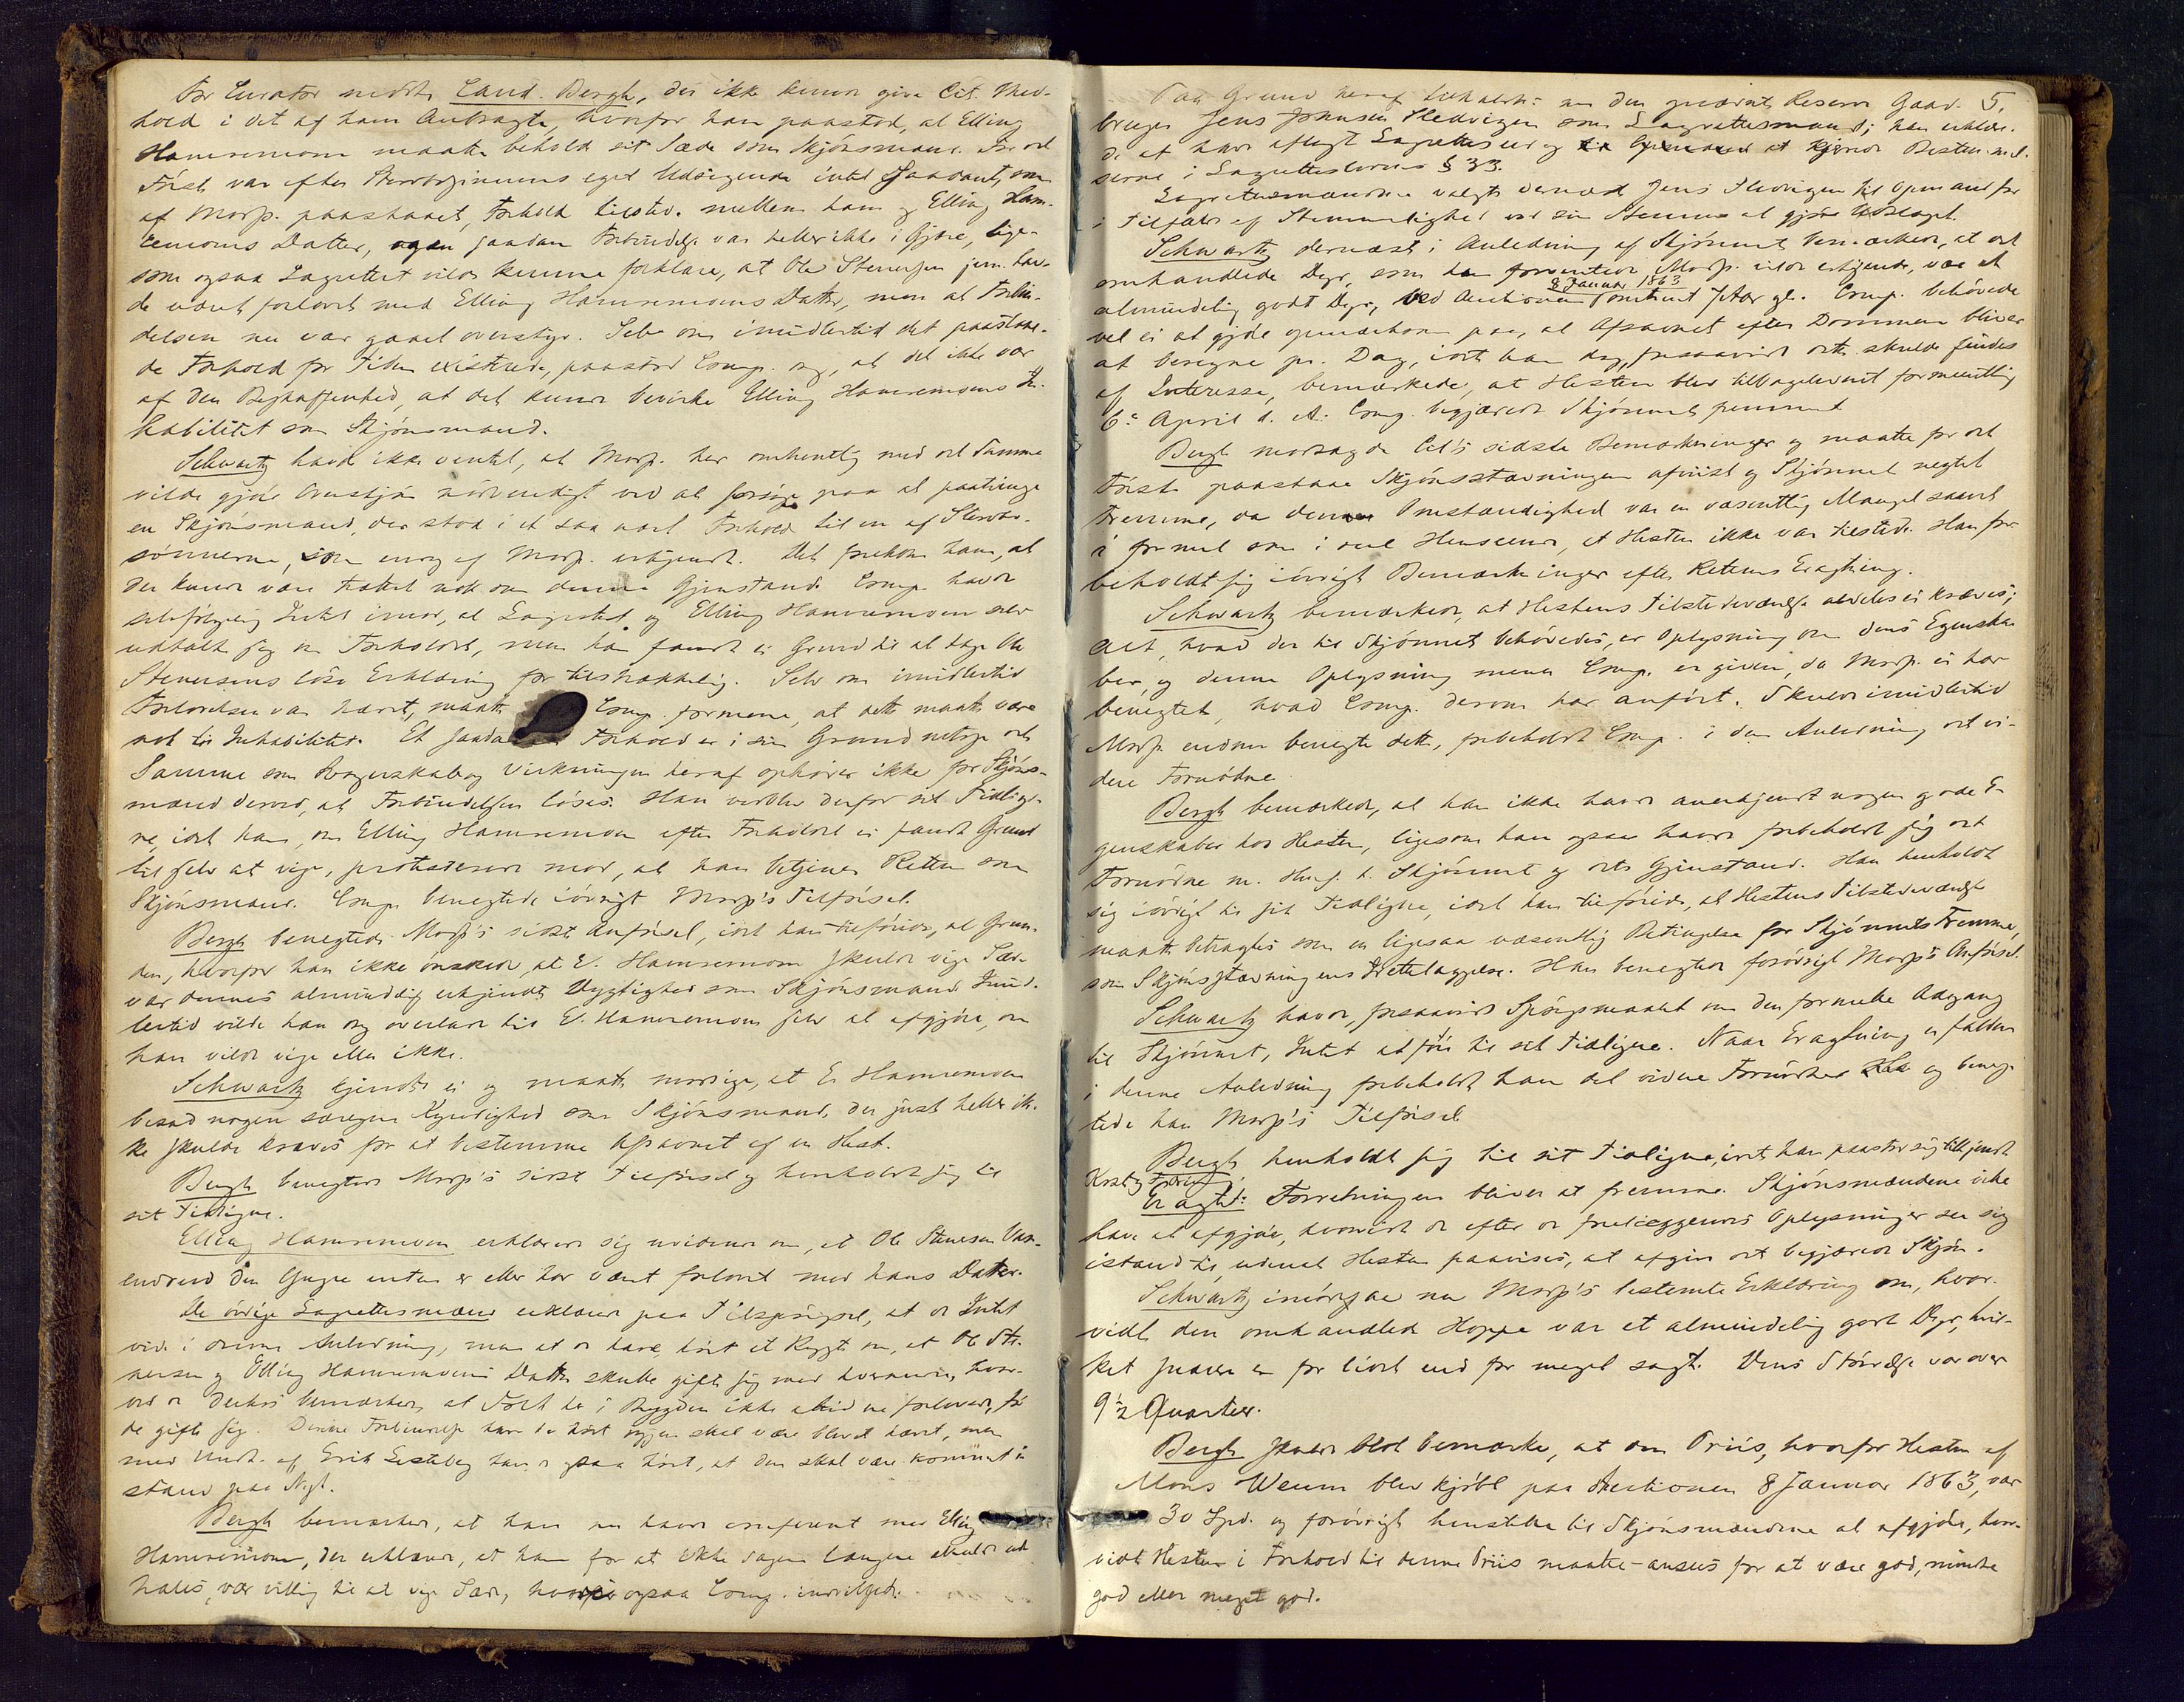 For Curator mødte Cand. Bergh, der ikke kunde give Cit. Med-
hold i det af ham Anbragte, hvorfor han paastod, at Elling
Hamremoen maatte beholde sit Sæde som Skjönsmand. For det
Første var efter  eget Udsigende intet Saadant, som
af Modp. paastaaet, Forhold tilstede mellem ham og Elling Ham-
remoens Datter, og en saadan Forbindelse var heller ikke i Gjære, lige-
som ogsaa Lagrettet vilde kunne forklare, at Ole Stenersen  hav-
de været forlovet med Elling Hamremoens Datter, men at Forbin-
delsen nu var gaaet overstyr. Selv om imidlertid det paastaae-
de Forhold for Tiden existerede, paastod Comp. og, at det ikke var
af den Beskaffenhed, at det kunde bevirke Elling Hamremoens In-
habilitet som Skjönsmand.
Schwartz havde ikke ventet, at Modp. her omhentlig med det Samme
vilde gjöre Omskjön nödvendigt ved at forsöge paa at paatvinge
en Skjönsmand, der stod i et saa nært Forhold til en af Stervbo-
sönnerne, som  af Modp. erkjendt. Det forekom ham, at
der kunde være trættet nok om denne Gjenstand. Comp. havde
selvfölgelig Intet imod, at Lagrettet og Elling Hamremoen selv
udtalte sig om Forholdet, men han fandt ei Grund til at tage Ole
Stenersens löse Erklæring for tilstrækkelig. Selv om imidlertid
Forlovelsen var hævet, maatte Comp. formene, at dette maatte være
nok til Inhabilitet. Et saadant Forhold er i sin Grund netop det
Samme som Svogerskab og Virkningen deraf ophörer ikke for Skjöns-
mænd derved, at Forbindelsen löses. Han vedblev derfor sit Tidlige-
re, idet han, om Elling Hamremoen efter Forholdet ei fandt Grund
til selv at vige, protesterede mod, at han betjener Retten som
Skjönsmand. Comp. benegtede iövrigt Modp's Tilförsel.
Bergh benegtede Modp's sidste Anförsel, idet han tilföiede, at Grun-
den, hvorfor han ikke önskede, at E. Hamremoen skulde vige Sæde
var dennes almindelig erkjendte Dygtighed som Skjönsmand. Imid-
lertid vilde han og overlade til E. Hamremoen selv at afgjöre, om
han vilde vige eller ikke.
Schwartz kjendte ei og maatte modsige, at E. Hamremoen
besad nogen særegen Kyndighed som Skjönsmand, der just heller ik-
ke skulde kræves for at bestemme Afsavnet af en Hest.
Bergh benegtede Modp's sidste Tilförsel og henholdt sig til
sit Tidligere.
Elling Hamremoen erklærede sig uvidende om, at Ole Stenersen 
 den Yngre enten er eller har været forlovet med hans Datter.
De övrige Lagrettesmænd erklærede paa Tilspörgsel, at de Intet
vide i denne Anledning, men at de have hört et Rygte om, at Ole Ste-
nersen og Elling Hamremoens Datter skulle gifte sig med hverandre, hvor-
ved de  bemærkede, at Folk her i Bygden ikke altid ere forlovede, för
de gifte sig. Denne Forbindelse have de hört igjen skal være blevet hævet, men
med Undt. af Erik  har de ogsaa hört, at den skal være kommet i
stand paa Nyt.
Bergh bemærkede, at han nu havde confereret med Elling
Hamremoen, der erklærede, at han for at ikke Sagen længere skulde ud-
hales, var villig til at vige Sæde, hvori ogsaa Comp. indvilgede.
5.
Paa Grund heraf tilkaldtes nu den  Reserve Gaard-
bruger Jens Johnsen Hedvigen som Lagrettesmand; han erklære-
de at have aflagt Lagrettesed og at kjende Bestemmel-
serne i Lagretteslovens § 33.
Lagrettesmændene valgte dernæst Jens Hedvigen til Opmand for
i Tilfælde af Stemmelighed ved sin Stemme at gjöre Udslaget.
Schwartz dernæst i Anledning af Skjönnet bemærkede, at det
omhandlede Dyr, som han formentlig Modp. vilde erkjende, var et
8 Januar 1863
almindelig godt Dyr, ved Auctionen omtrent 7 Aar gl. Comp. behövede
vel ei at gjöre opmærksom paa, at Afsavnet efter Dommen bliver
at beregne pr. Dag, idet han dog, forsaavidt dette skulde findes
af Interesse, bemærkede, at Hesten blev tilbageleveret formentlig
6te April d. A. Comp. begjærede Skjönnet fremmet.
Bergh modsagde Cit's sidste Bemærkninger og maatte for det
Förste paastaae Skjönsstævningen afviist og Skjönnet negtet
Fremme, da denne Omstændighed var en væsentlig Mangel saavel
i formel som i reel Henseende, at Hesten ikke var tilstede. Han for-
beholdt sig iövrigt Bemærkninger efter Rettens Eragtning.
Schwartz bemærkede, at Hestens Tilstedeværelse aldeles ei kræves;
alt, hvad der til Skjönnet behövedes, er Oplysning om dens Egenska-
ber, og denne Oplysning mener Comp. er given, da Modp. ei har
benegtet, hvad Comp. derom har anfört. Skulde imidlertid
Modp. endnu benegte dette, forbeholdt Comp. i den Anledning det vi-
dere Fornödne.
Bergh bemærkede, at han ikke havde anerkjendt nogen gode E-
genskaber hos Hesten, ligesom han ogsaa havde forbeholdt sig det
Fornödne m. Hens. t. Skjönnet og dets Gjenstand. Han henholdt
sig iövrigt til sit Tidligere, idet han tilföiede, at Hestens Tilstedeværelse
maatte betragtes som en ligesaa væsentlig Betingelse for Skjönnets Fremme,
som Skjönsstævningens Irettelæggelse. Han benegtede forövrigt Modp's Anförsel.
Schwartz havde, forsaavidt Spörgsmaalet om den formelle Adgang
til Skjönnet, Intet at föie til sit Tidligere. Naar Eragtning er falden
i denne Anledning forbeholdt han det videre Fornödne og beneg-
tede han Modp's Tilförsel.
Bergh henholdt sig til sit Tidligere, idet han paastod sig tilkjendt
Kost og Tæring.
Eragtet: Forretningen bliver at fremme. Skjönsmændene ville
have at afgjöre, hvorvidt de efter de foreliggende Oplysninger see sig
istand til, uden at Hesten paavises, at afgive det begjærede Skjön.
Schwartz imödesaae nu Modp's bestemte Erklæring om, hvor-
vidt den omhandlede Hoppe var et almindelig godt Dyr, hvil-
ket snarere er for lidet end for meget sagt. Dens Störrelse var over
9 1/2 Quarter.
Bergh skulde blot bemærke, at den Priis, hvorfor Hesten af
Mons Weum blev kjöbt paa Auctionen 8 Januar 1863, var
30 Spd. og forövrigt henstille til Skjönsmændene at afgjöre, hvor-
vidt Hesten i Forhold til denne Priis maatte ansees for at være god, mindre
god eller meget god.